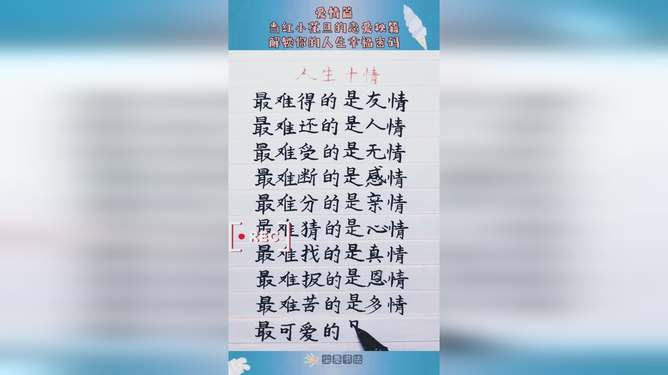 爱情篇
当红小花旦的恋爱秘籍
解锁你的人生幸福密码
人生十情
最难得的是友情
最难还的是人情
最难受的是无情
最难断的是感情
最难分的是亲情
最难猜的是心情
REC
最难找的是真情
最难报的是恩情
最难苦的是多情
最可爱的